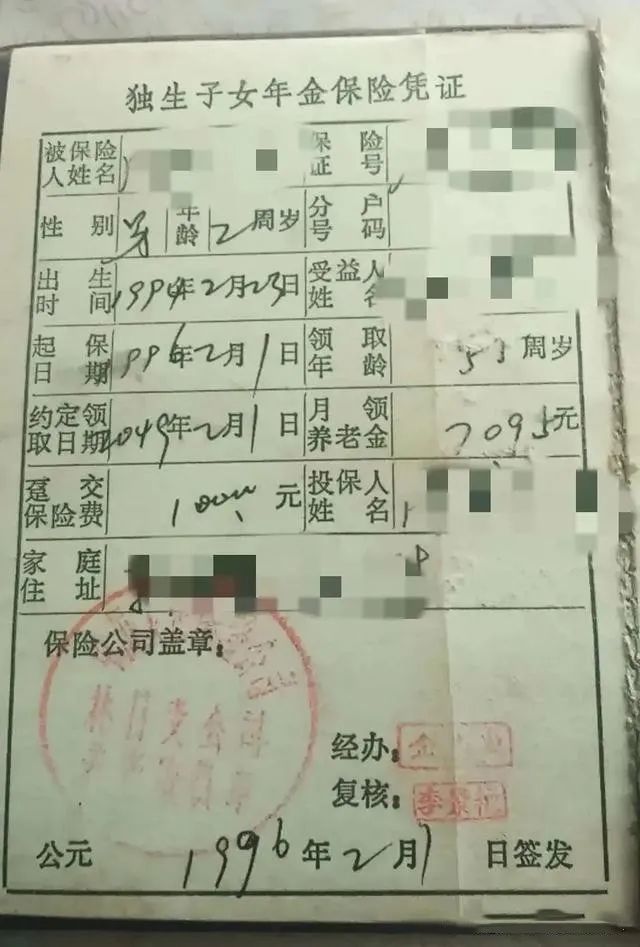 独生子女年金保险凭证
被保险人姓名 保险证号
性别 男 年龄 2周岁 分户号码
出生时间 1994年2月23日 受益人姓名
起保日期 1996年2月1日 领取年龄 55周岁
约定领取日期 2049年2月1日 月领养老金 7095元
趸交保险费 1000 元 投保人姓名
家庭住址
保险公司盖章:
经办:金
复核:李景
公元 1996年2月1日签发